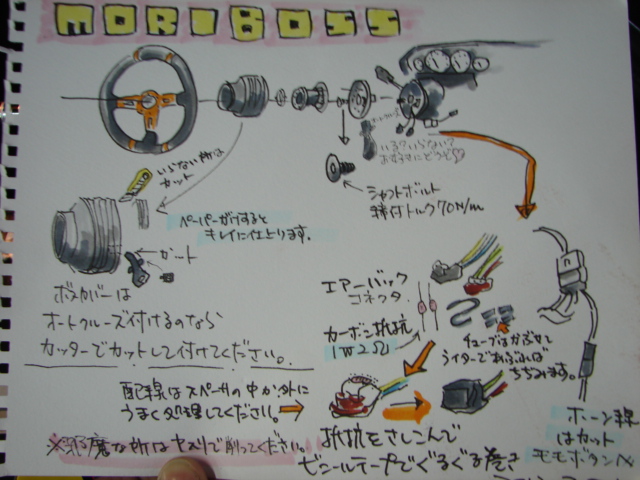 MORIBOSS
いる?いらない?
お好きにどうぞ♡
いらない所は
カット
シャフトボルト
締付トルク70N/m
ペーパーがけすると
キレイに仕上ります。
カット
ボスカバーは
オートクルーズ付けるのなら
カッターでカットして付けてください。
エアーバック
コネクタ
カーボン抵抗
1W2Ω
チューブはかぶせ
ライターであぶれば
ちぢみます。
配線はスペーサの中か外に
うまく処理してください。
※邪魔な所はヤスリで削ってください。
抵抗をさしこんで
ビニールテープでぐるぐる巻き
ホーン線
はカット
モモボタンへ